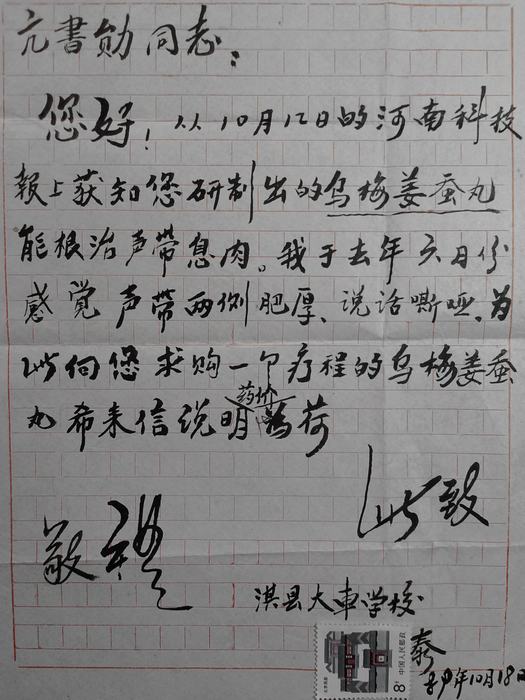 亢書勛同志：
您好！从10月12日的河南科技
報上获知您研制出的乌梅姜蚕丸
能根治声带息肉。我于去年六月份
感觉声带两侧肥厚、说话嘶哑，为
此向您求购一个疗程的乌梅姜蚕
药价
丸希来信说明为荷
此致
敬禮
淇县大車学校
泰
年10月18日
中国人民邮政
8分